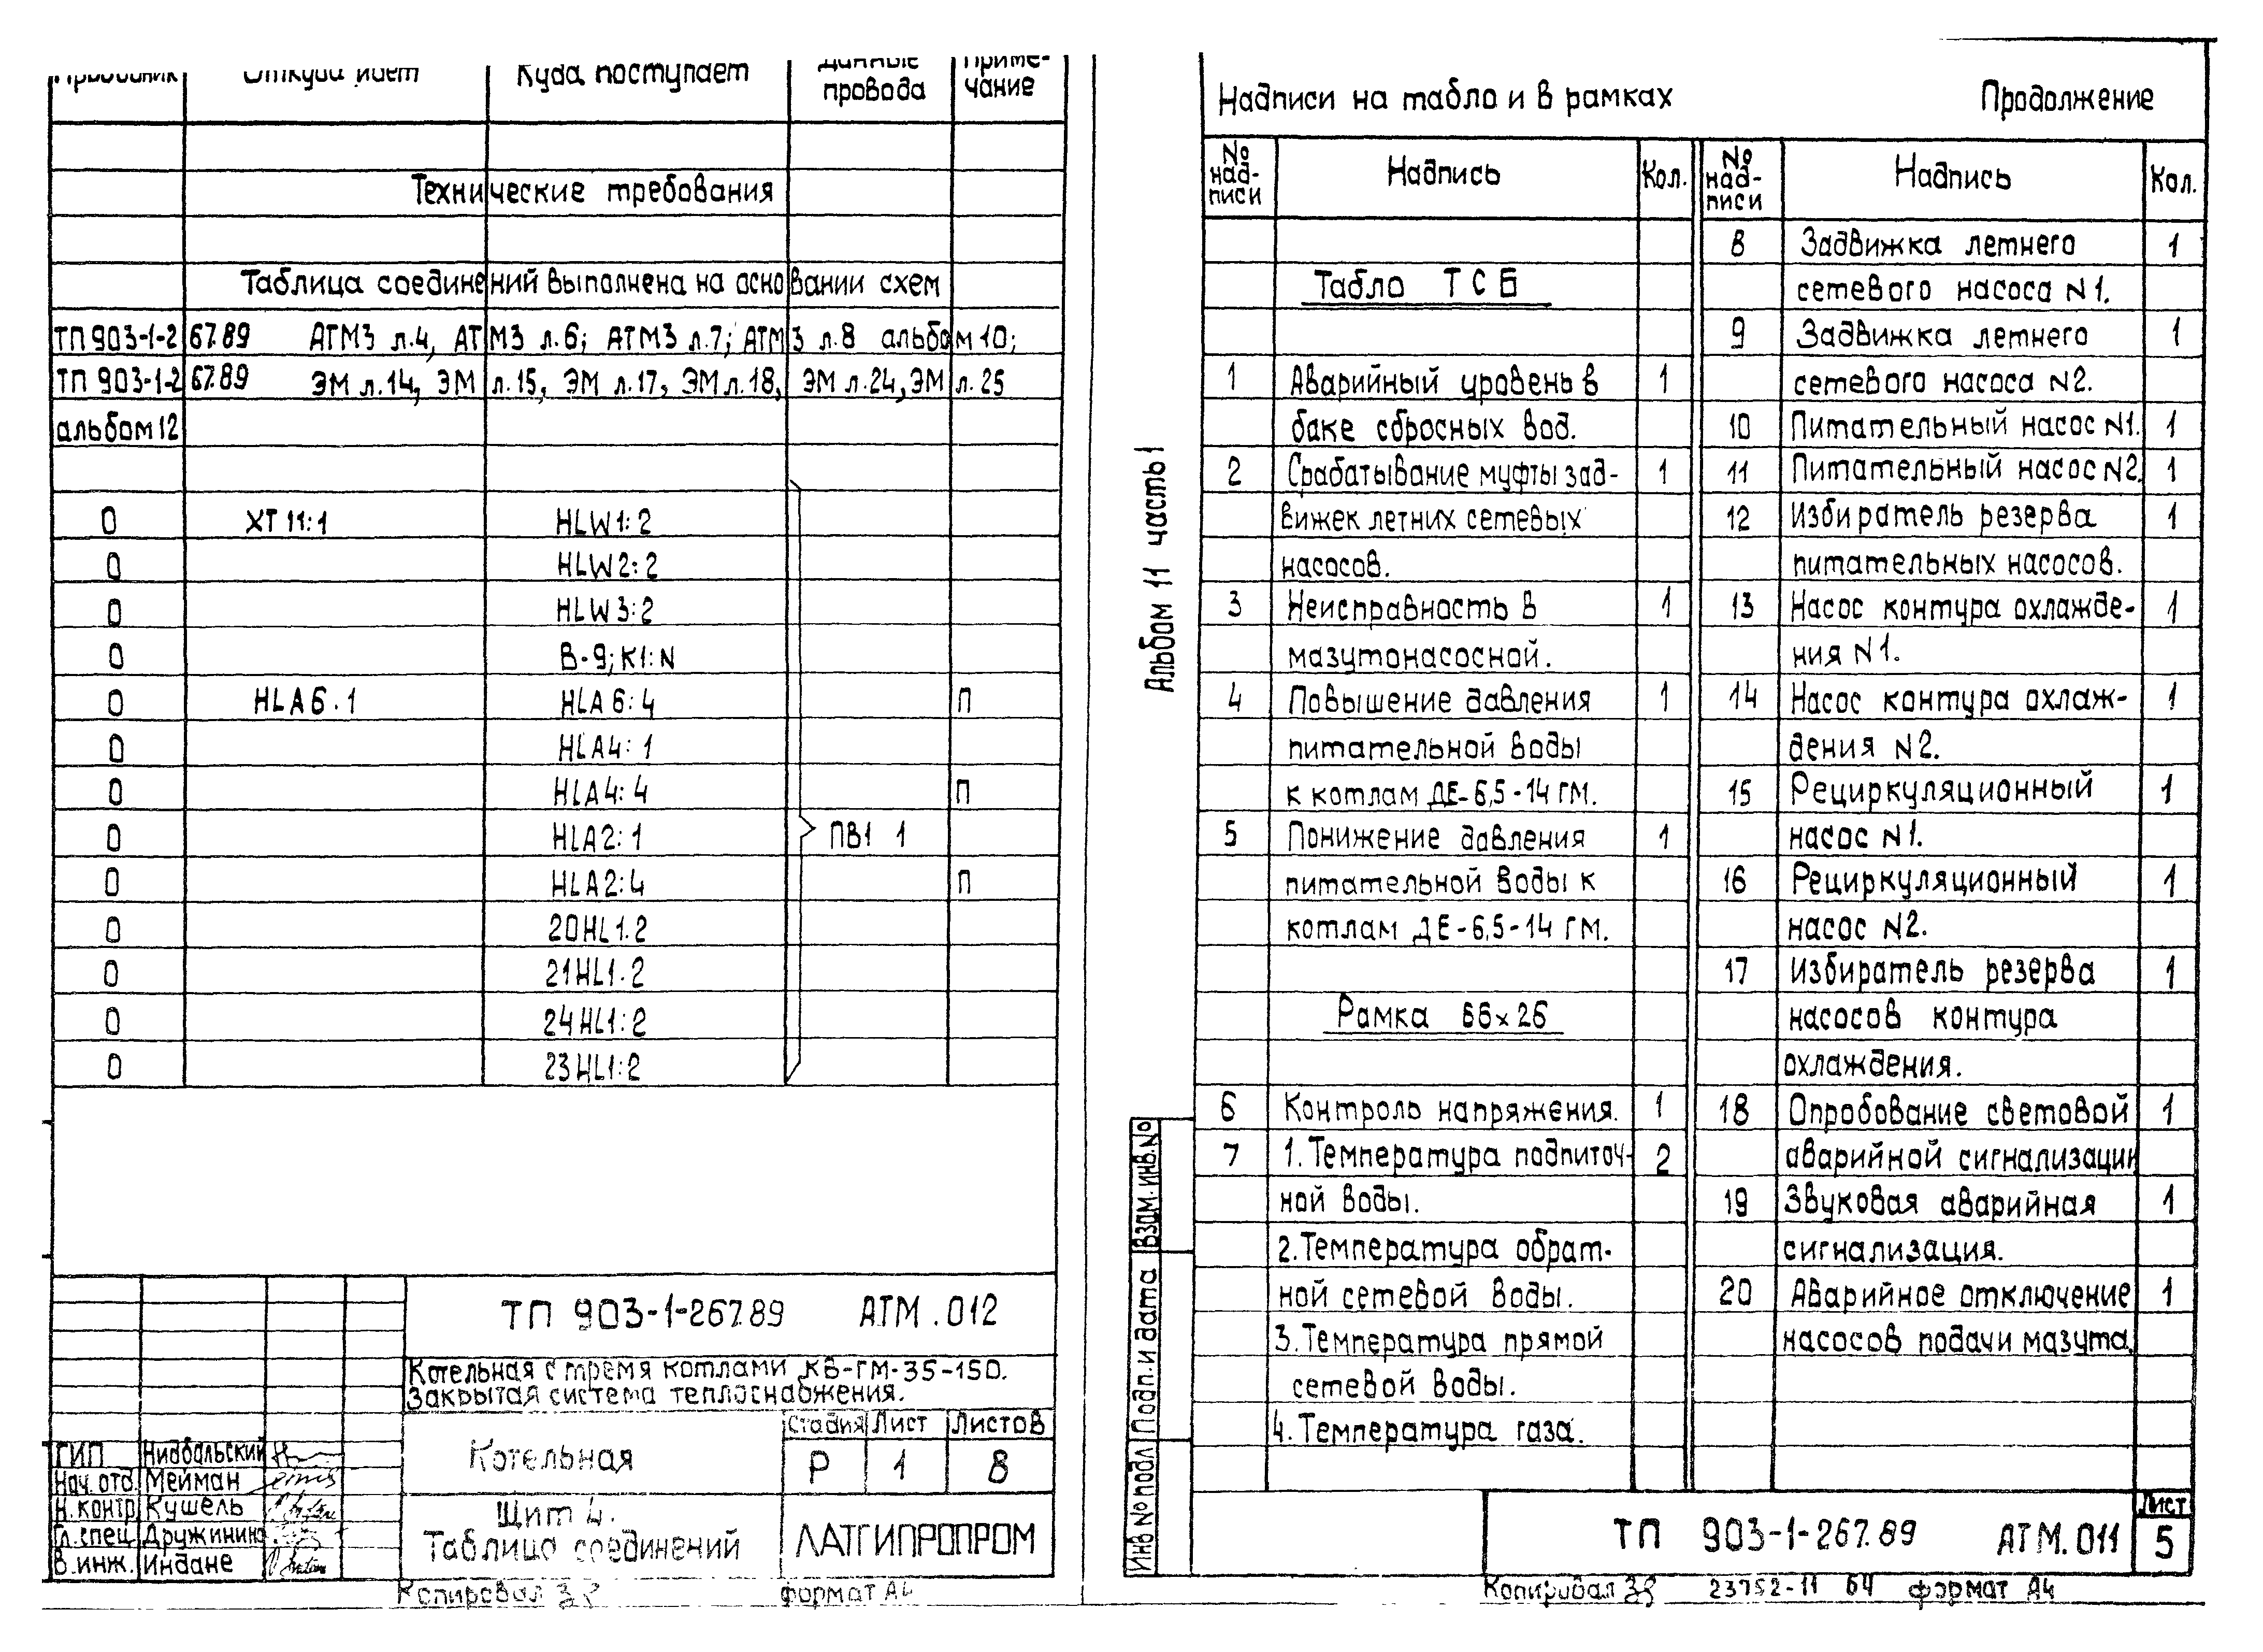 Проводник Откуда идет Куда поступает Данные провода Приме-чание
Технические требования
Таблица соединений выполнена на основании схем
ТП 903-1-267.89 АТМ3 л.4, АТМ3 л.6; АТМ3 л.7; АТМ3 л.8 альбом 10;
ТП 903-1-267.89 ЭМ л.14, ЭМ л.15, ЭМ л.17, ЭМ л.18, ЭМ л.24, ЭМ л.25
альбом 12
0 XT11:1 HLW1:2
0 HLW2:2
0 HLW3:2
0 В-9; К1:N
0 HLA6.1 HLA6:4 П
0 HLA4:1
0 HLA4:4 П
0 HLA2:1 ПВ1 1
0 HLA2:4 П
0 20HL1.2
0 21HL1.2
0 24HL1:2
0 23HL1:2
ТП 903-1-267.89 АТМ.012
Котельная с тремя котлами КВ-ГМ-35-150.
Закрытая система теплоснабжения.
Котельная
Стадия Лист Листов
Р 1 8
Щит 4.
Таблица соединений
ЛАТГИПРОПРОМ
ГИП Ниабальский
Нач. отд. Мейман
Н. контр. Кушель
Гл. спец. Дружинин
В. инж. Индане
Копировал формат А4
Альбом 11 часть 1
Взам. инв. №
Подп. и дата
Инв № подл
Надписи на табло и в рамках Продолжение
№ над-писи Надпись Кол.
Табло ТСБ
1 Аварийный уровень в 1
баке сбросных вод.
2 Срабатывание муфты зад- 1
вижек летних сетевых
насосов.
3 Неисправность в 1
мазутонасосной.
4 Повышение давления 1
питательной воды
к котлам ДЕ-6,5-14 ГМ.
5 Понижение давления 1
питательной воды к
котлам ДЕ-6,5-14 ГМ.
Рамка 66×26
6 Контроль напряжения. 1
7 1. Температура подпиточ- 2
ной воды.
2. Температура обрат-
ной сетевой воды.
3. Температура прямой
сетевой воды.
4. Температура газа.
№ над-писи Надпись Кол.
8 Задвижка летнего 1
сетевого насоса N1.
9 Задвижка летнего 1
сетевого насоса N2.
10 Питательный насос N1. 1
11 Питательный насос N2. 1
12 Избиратель резерва 1
питательных насосов.
13 Насос контура охлажде- 1
ния N1.
14 Насос контура охлаж- 1
дения N2.
15 Рециркуляционный 1
насос N1.
16 Рециркуляционный 1
насос N2.
17 Избиратель резерва 1
насосов контура
охлаждения.
18 Опробование световой 1
аварийной сигнализации
19 Звуковая аварийная 1
сигнализация.
20 Аварийное отключение 1
насосов подачи мазута.
ТП 903-1-267.89 АТМ.011
Лист
5
Копировал 23752-11 64 формат А4